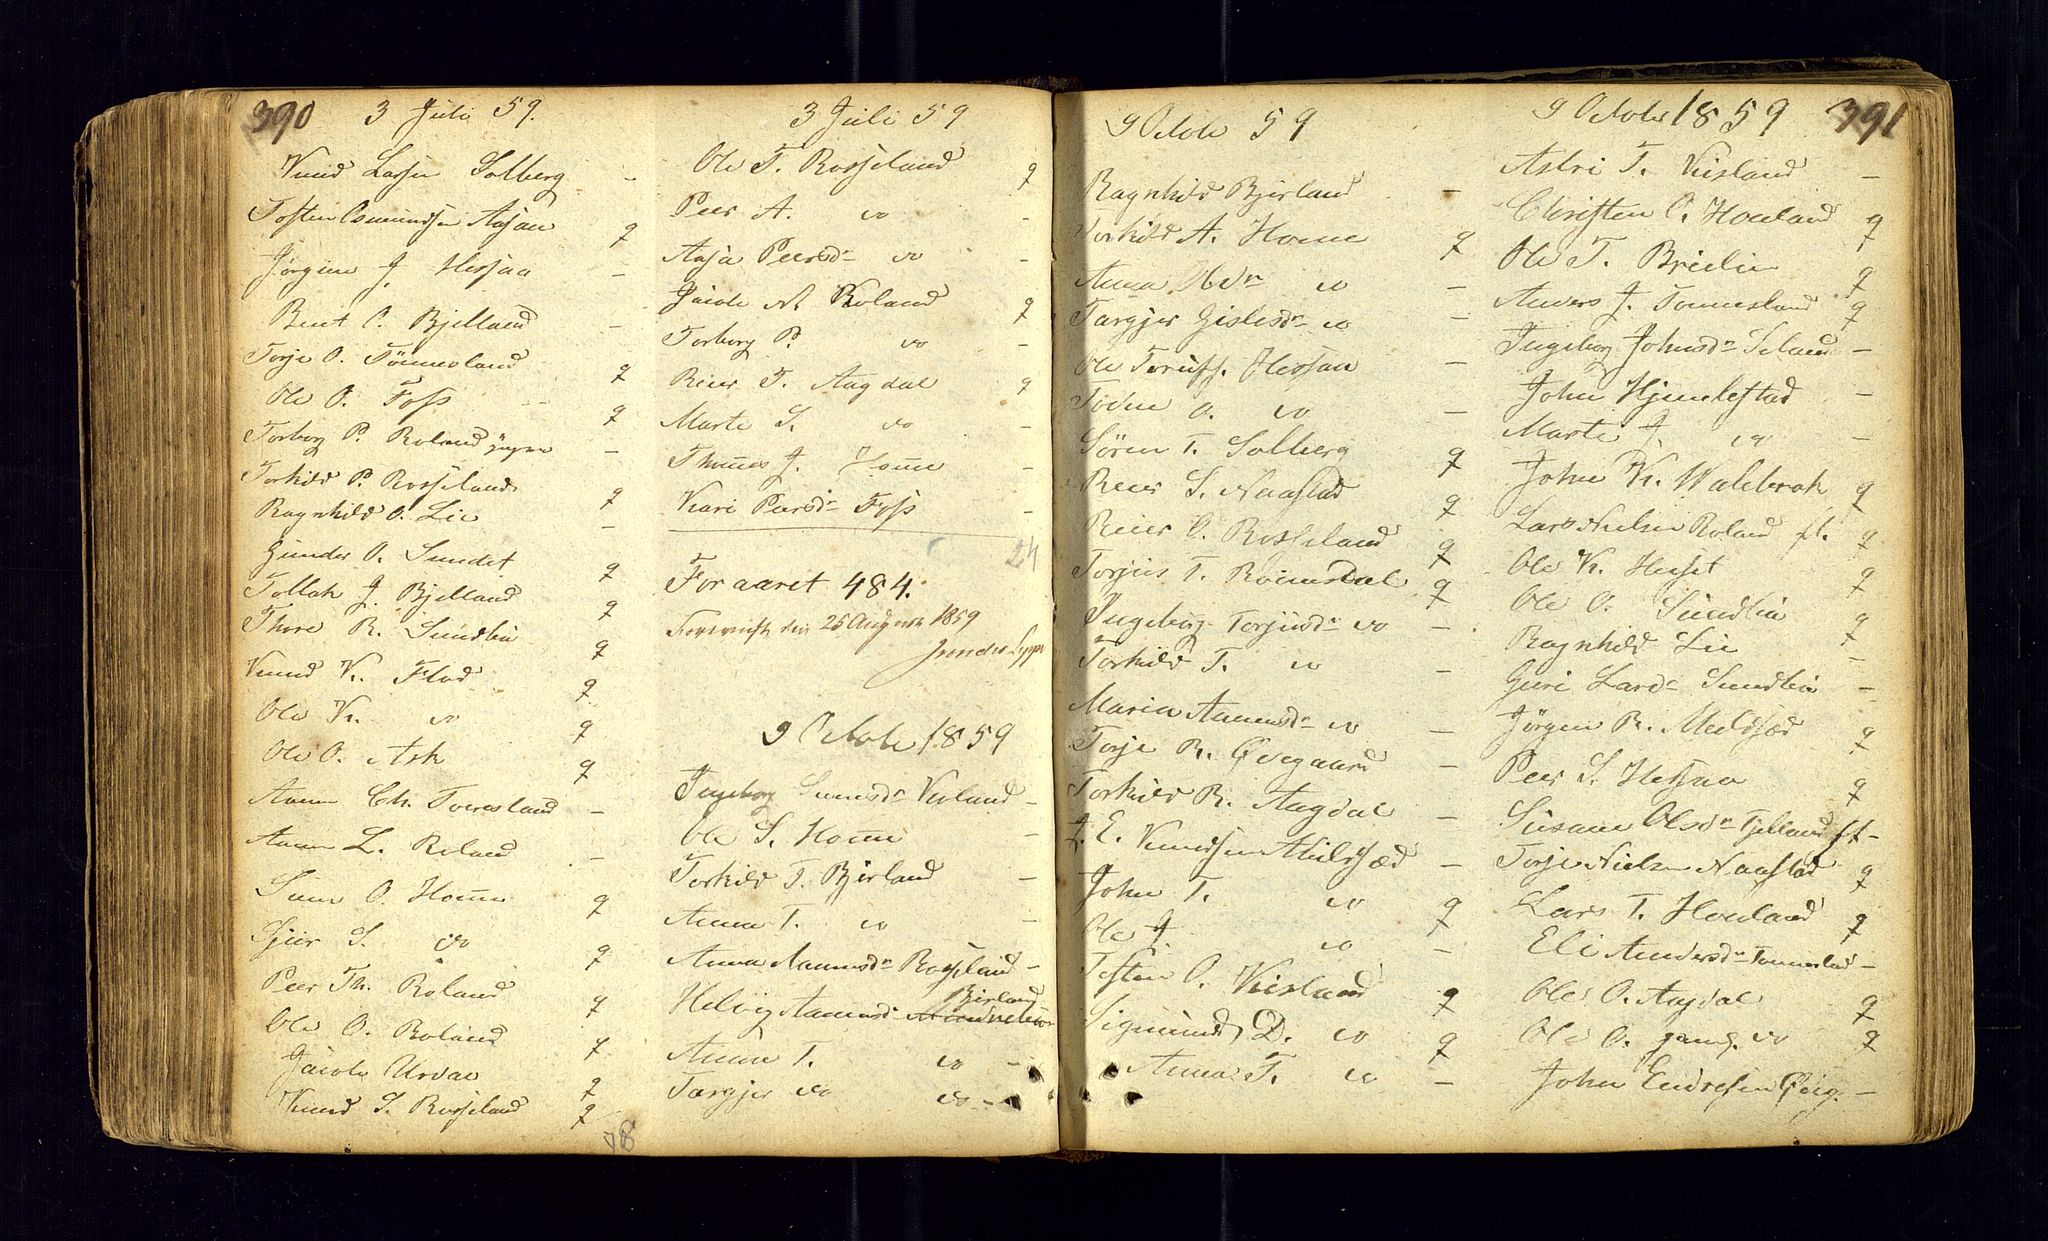 390
3 Juli 59.
Knud Larsen Solberg -
Tosten Osmundsen Aasan q
Jørgen J. Hessaa -
Bent O. Bjelland -
Torje O. Tønnesland q
Ole O. Foss q
Torborg P. Roland yngre -
Torkild P. Rosseland q
Ragnhild O. Lie -
Gunder O. Sundet q
Tollak J. Bjelland q
Thore R. Sundlin q
Knud K. Flod q
Ole K. do q
Ole O. Ask q
Anne Ch. Tveresland -
Anne L. Roland -
Sune O. Home q
Sjur S. do q
Peer Th. Roland q
Ole O. Roland q
Jacob Urdal q
Knud S. Rosseland q
78
3 Juli 59
Ole T. Rosseland q
Peer A. do -
Aasa Peersdr do -
Jacob A. Roland q
Torborg P. do -
Reier T. Aagdal q
Marte S. do -
Thomes J. Home -
Kari Peersdr Foss -
24
For aaret 484.
Forevist den 25 August 1859
9 Octobr 1859
Ingeborg Sunesdr Veiland -
Ole S. Home -
Torkild T. Bjerland -
Anne T. do -
Anna Aanensdr Rosseland -
Bjerland
Helvig Aanensd
Anna T. do -
Targjer do do -
9 Octobr 59
Ragnhild Bjerland -
Torkild A. Home q
Anna Olsdr do -
Targjer Gislesdr do -
Ole Terufs. Hessaa -
Todne O. do -
Søren T. Solberg q
Reier S. Naastad q
Reier O. Rosseland q
Torjus T. Roiemsdal q
Ingeborg Torjusdr do -
Torkild T. do -
Maria Aanensdr do -
Torje R. Øvegaard -
Torkild R. Aagdal -
J. E. Knudsen Mildsæd -
John T. do q
Ole J. do -
Tosten O. Kisland q
Sigmund D. do q
Anna T. do -
9 Octobr 1859
391
Astri T. Kisland -
Christen O. Houland q
Ole T. Breilin q
Anders J. Tonnesland q
Ingeborg Johnsdr Seland -
John Hjemlestad -
Marte J. do -
John K. Waldbrok q
Lars Nielsen Roland ft. q
Ole K. Huset q
Ole O. Sundlin q
Ragnhild Lie -
Guri Larsdr Sundlin -
Jørgen R. Meldsæd q
Peer S. Hessaa q
Susanne Olsdr Tjelland ft -
Torje Nielsen Naastad q
Lars T. Houland q
Eli Andersdr Tonnesland -
Ole O. Aagdal q
Ole O. gaml. do q
John Endresen Øvig. -